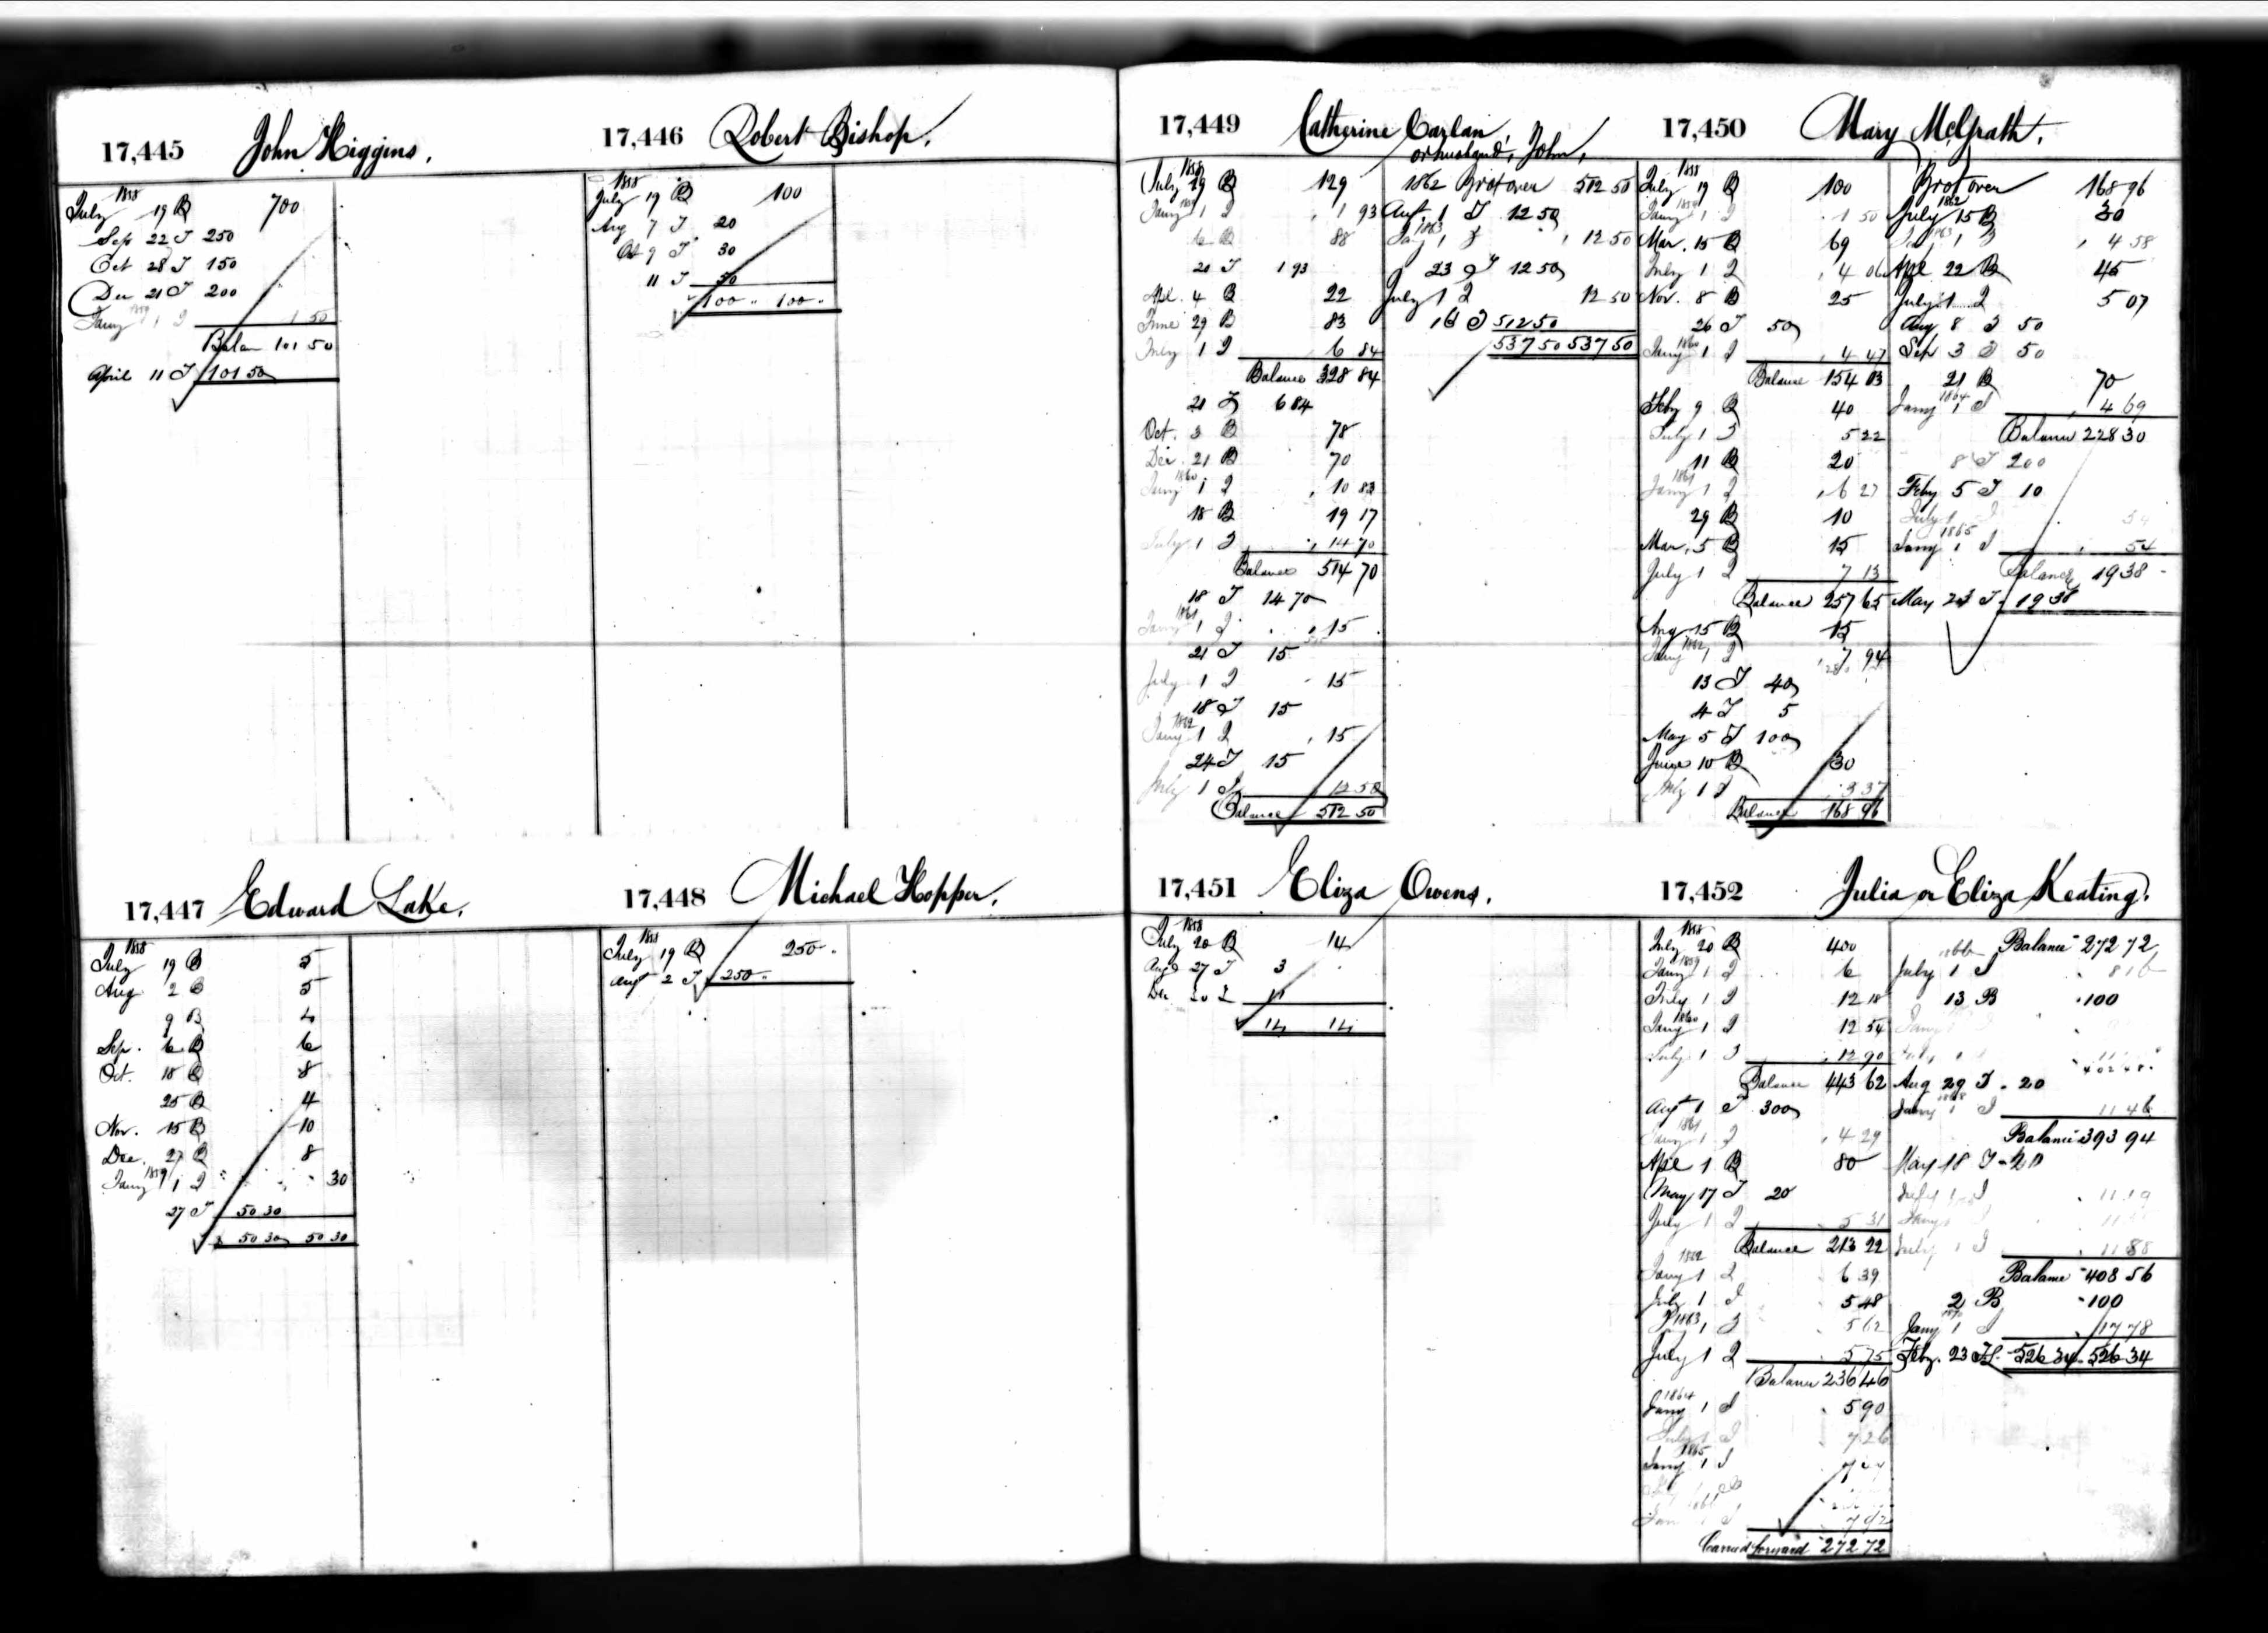 17,445 John Higgins.
1858
July 19 B 700
Sep 22 T 250
Oct 28 T 150
Dec 21 T 200
1859
Jany 1 I 1 50
Balan 101 50
April 11 T 101 50
17,446 Robert Bishop.
1858
July 19 B 100
Aug 7 T 20
Oct 9 T 30
11 T 50
100 " 100 "
17,447 Edward Lake.
1858
July 19 B 5
Aug 2 B 5
9 B 4
Sep. 6 B 6
Oct. 18 B 8
25 B 4
Nov. 15 B 10
Dec. 27 B 8
1859
Jany 1 I 30
27 T 50 30
50 30 50 30
17,448 Michael Hopper.
1858
July 19 B 250 "
Aug 2 T 250 "
17,449 Catherine Carlan,
or husband, John,
1858
July 19 B 129
Jany 1 I 1 93
6 B 88
20 T 1 93
Apl. 4 B 22
June 29 B 83
July 1 I 6 84
Balance 328 84
21 T 6 84
Oct. 3 B 78
Dec. 21 B 70
1860
Jany 1 I 10 83
18 B 19 17
July 1 I 14 70
Balance 514 70
18 T 14 70
1861
Jany 1 I 15
21 T 15
July 1 I 15
18 T 15
1862
Jany 1 I 15
24 T 15
July 1 I 12 50
Balance 512 50
1862 Brot over 512 50
Aug. 1 T 12 50
1863
Ja 1 I 12 50
23 T 12 50
July 1 I 12 50
16 T 512 50
537 50 537 50
17,450 Mary McGrath.
1858
July 19 B 100
1859
Jany 1 I 1 50
Mar. 15 B 69
July 1 I 4 06
Nov. 8 B 25
26 T 50
1860
Jany 1 I 4 47
Balance 154 03
Feby 9 B 40
July 1 I 5 22
11 B 20
1861
Jany 1 I 6 27
29 B 10
Mar. 5 B 15
July 1 I 7 13
Balance 257 65
Aug 15 B 15
1862
Jany 1 I 7 94
13 T 40
4 T 5
May 5 T 100
June 10 B 30
July 1 I 3 37
Balance 168 96
Brot over 168 96
1862
July 15 B 30
1863
Jay 1 I 4 58
Apl 22 B 45
July 1 I 5 07
Aug 8 T 50
Sep 3 T 50
21 B 70
1864
Jany 1 I 4 69
Balance 228 30
8 T 200
Feby 5 T 10
July 1 I 54
1865
Jany 1 I 54
Balance 19 38
May 23 T 19 38
17,451 Eliza Owens.
1858
July 20 B 14
Aug 27 T 3
Dec 20 T 11
14 14
17,452 Julia or Eliza Keating.
1858
July 20 B 400
1859
Jany 1 I 6
July 1 I 12 18
1860
Jany 1 I 12 54
July 1 I 12 90
Balance 443 62
Aug 1 T 300
1861
Jany 1 I 4 29
Apl 1 B 80
May 17 T 20
July 1 I 5 31
Balance 213 22
1862
Jany 1 I 6 39
July 1 I 5 48
1863
J 1 I 5 62
July 1 I 5 75
Balance 236 46
1864
Jany 1 I 5 90
July 1 I 7 26
1865
Jany 1 I
7 92
Carried forward 272 72
Balance 272 72
1866
July 1 I 8 16
13 B 100
Jany
Aug 29 T 20
1868
Jany 1 I 11 46
Balance 393 94
May 18 T 20
July 1 I 11 19
Jany
July 1 I 11 88
Balance 408 56
2 B 100
1870
Jany 1 I 17 78
Feby. 23 T 526 34 526 34